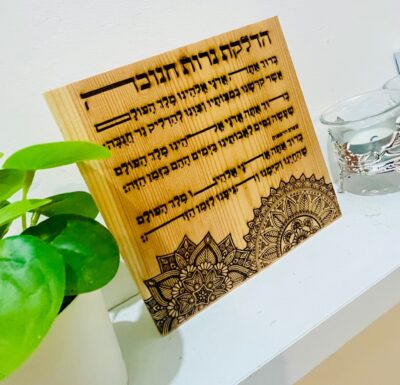 הדלקת נרות חנוכה
ברוך אתה אדני אלהינו מלך העולם
אשר קדשנו במצותיו וצונו להדליק נר חנוכה:
ברוך אתה אדני אלהינו מלך העולם
שעשה נסים לאבותינו בימים ההם בזמן הזה:
ברוך אתה אדני אלהינו מלך העולם
שהחינו וקימנו והגיענו לזמן הזה: